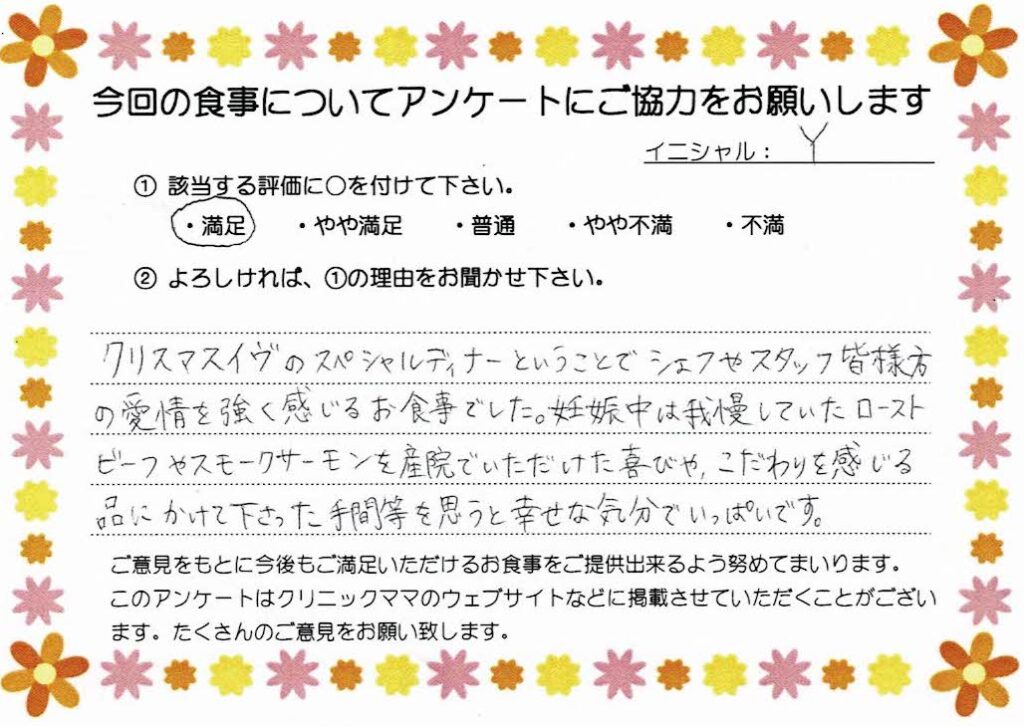 今回の食事についてアンケートにご協力をお願いします
イニシャル： Y
① 該当する評価に○を付けて下さい。
・満足 ・やや満足 ・普通 ・やや不満 ・不満
② よろしければ、①の理由をお聞かせ下さい。
クリスマスイヴのスペシャルディナーということでシェフやスタッフ皆様方
の愛情を強く感じるお食事でした。妊娠中は我慢していたロースト
ビーフやスモークサーモンを産院でいただけた喜びや、こだわりを感じる
品にかけて下さった手間等を思うと幸せな気分でいっぱいです。
ご意見をもとに今後もご満足いただけるお食事をご提供出来るよう努めてまいります。
このアンケートはクリニックママのウェブサイトなどに掲載させていただくことがござい
ます。たくさんのご意見をお願い致します。